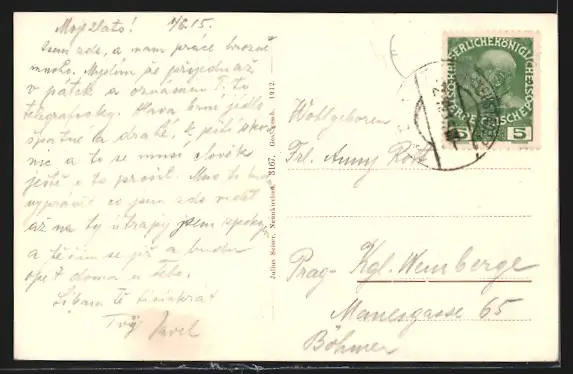 Moje zlato! 1/6.15.
Jsem zde, a mám práce hrozně
mnoho. Myslím že přijedu až
v pátek a oznámím Ti to
telegraficky. Káva černá jídlo
špatné a drahé, k pití skoro
nic a to se musí člověk
ještě o to prosit. Moc to
vyprávět co jsem zde
až na ty útrapy jsem spokoj.
a těším se již a budu
opět doma u Tebe.
Líbám Tě tisíckrát
Tvůj Pavel
Julius Seiser, Neunkirchen, 3167. Gesetzesch. 1912.
KAIS·KÖNIGL·OESTERREICHISCHE POST
5 5
Wohlgeboren
Frl. Anny
Prag- Kgl. Weinberge
Manesgasse 65
Böhmen